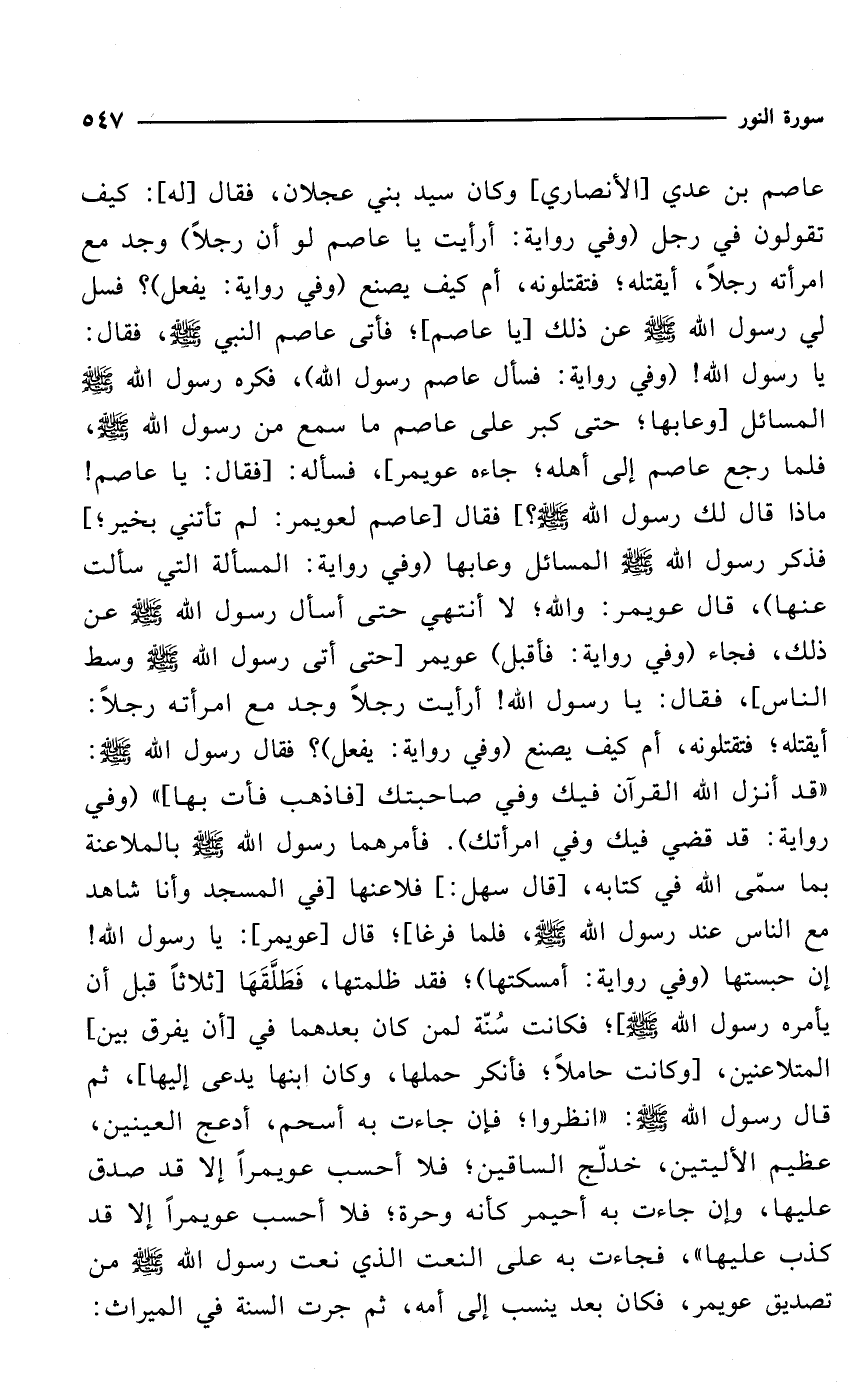 سورة النور ٥٤٧
عاصم بن عدي [الأنصاري] وكان سيد بني عجلان، فقال [له]: كيف
تقولون في رجل (وفي رواية: أرأيت يا عاصم لو أن رجلاً) وجد مع
امرأته رجلاً، أيقتله؛ فتقتلونه، أم كيف يصنع (وفي رواية: يفعل)؟ فسل
لي رسول الله ﷺ عن ذلك [يا عاصم]؛ فأتى عاصم النبي ﷺ، فقال:
يا رسول الله! (وفي رواية: فسأل عاصم رسول الله)، فكره رسول الله ﷺ
المسائل [وعابها؛ حتى كبر على عاصم ما سمع من رسول الله ﷺ،
فلما رجع عاصم إلى أهله؛ جاءه عويمر]، فسأله: [فقال: يا عاصم!
ماذا قال لك رسول الله ﷺ؟] فقال [عاصم لعويمر: لم تأتني بخير؛]
فذكر رسول الله ﷺ المسائل وعابها (وفي رواية: المسألة التي سألت
عنها)، قال عويمر: والله؛ لا أنتهي حتى أسأل رسول الله ﷺ عن
ذلك، فجاء (وفي رواية: فأقبل) عويمر [حتى أتى رسول الله ﷺ وسط
الناس]، فقال: يا رسول الله! أرأيت رجلاً وجد مع امرأته رجلاً:
أيقتله؛ فتقتلونه، أم كيف يصنع (وفي رواية: يفعل)؟ فقال رسول الله ﷺ:
«قد أنزل الله القرآن فيك وفي صاحبتك [فاذهب فأت بها]» (وفي
رواية: قد قضي فيك وفي امرأتك). فأمرهما رسول الله ﷺ بالملاعنة
بما سمّى الله في كتابه، [قال سهل:] فلاعنها [في المسجد وأنا شاهد
مع الناس عند رسول الله ﷺ، فلما فرغا]؛ قال [عويمر]: يا رسول الله!
إن حبستها (وفي رواية: أمسكتها)؛ فقد ظلمتها، فَطَلَّقَهَا [ثلاثاً قبل أن
يأمره رسول الله ﷺ]؛ فكانت سُنّة لمن كان بعدهما في [أن يفرق بين]
المتلاعنين، [وكانت حاملاً؛ فأنكر حملها، وكان ابنها يدعى إليها]، ثم
قال رسول الله ﷺ: «انظروا؛ فإن جاءت به أسحم، أدعج العينين،
عظيم الأليتين، خدلّج الساقين؛ فلا أحسب عويمراً إلا قد صدق
عليها، وإن جاءت به أحيمر كأنه وحرة؛ فلا أحسب عويمراً إلا قد
كذب عليها»، فجاءت به على النعت الذي نعت رسول الله ﷺ من
تصديق عويمر، فكان بعد ينسب إلى أمه، ثم جرت السنة في الميراث: